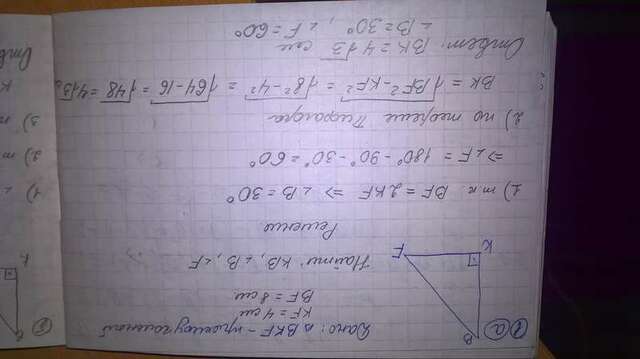 1 а
Дано: △BKF - прямоугольный
KF = 4 см
BF = 8 см
Найти: KB, ∠B, ∠F
B
K
F
Решение
1) т.к BF = 2KF ⇒ ∠B = 30°
⇒ ∠F = 180° - 90° - 30° = 60°
2) по теореме Пифагора
BK = √BF² - KF² = √8² - 4² = √64 - 16 = √48 = 4√3
Ответ: BK = 4√3 см
∠B = 30°, ∠F = 60°
1)
2) т
3)